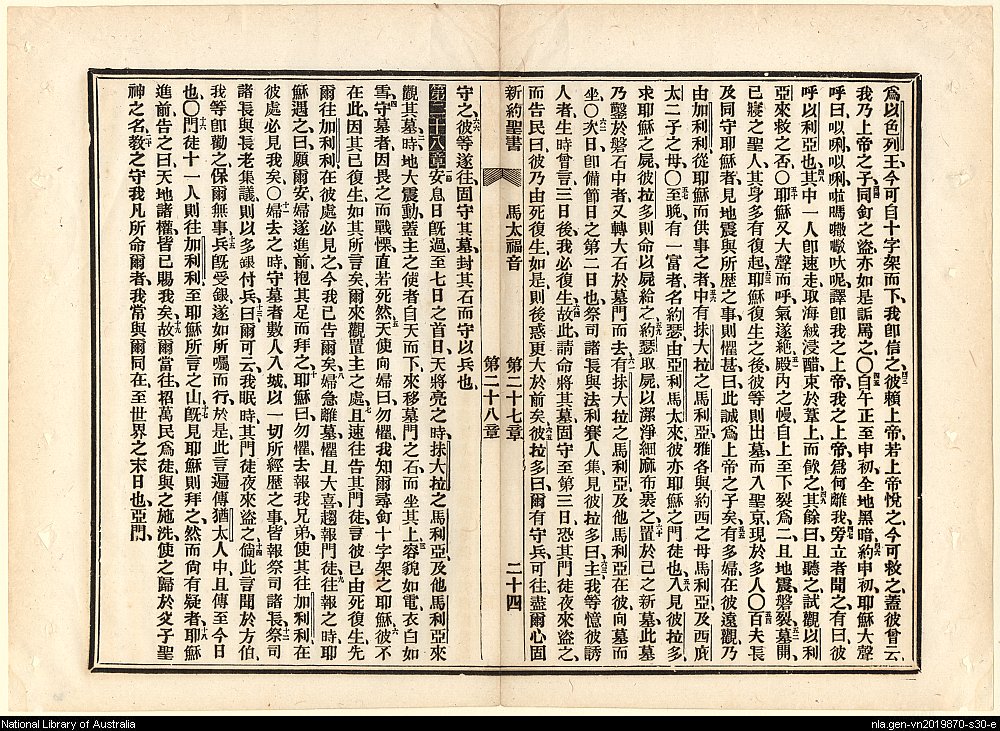 爲以色列王、今可自十字架而下、我卽信之、彼賴上帝、若上帝悅之、今可救之、蓋彼曾云、
我乃上帝之子、同釘之盜、亦如是詬厲之、〇自午正至申初、全地黑暗、約申初、耶穌大聲
呼曰、以唎以唎啦嗎撒𠺕大呢、譯卽我之上帝、我之上帝、爲何離我、旁立者聞之、有曰、彼
呼以利亞也、其中一人、卽速走取海絨浸醋、束於葦上而飲之、其餘曰、且聽之、試觀以利
亞來救之否、〇耶穌又大聲而呼、氣遂絕、殿內之幔、自上至下、裂爲二、且地震、磐裂、墓開、
已寢之聖人、其身多有復起、耶穌復生之後、彼等則出墓而入聖京、現於多人、〇百夫長
及同守耶穌者、見地震與所歷之事、則懼甚曰、此誠爲上帝之子矣、有多婦在彼遠觀、乃
由加利利從耶穌而供事之者、中有抹大拉之馬利亞、雅各與約西之母馬利亞、及西庇
太二子之母、〇至晚、有一富者、名約瑟、由亞利馬太來、彼亦耶穌之門徒也、入見彼拉多
求耶穌之屍、彼拉多則命以屍給之、約瑟取屍、以潔淨細麻布裹之、置於己之新墓、此墓
乃鑿於磐石中者、又轉大石於墓門而去、有抹大拉之馬利亞、及他馬利亞在彼、向墓而
坐、〇次日卽備節日之第二日也、祭司諸長與法利賽人集見彼拉多曰、主、我等憶彼誘
人者、生時曾言、三日後我必復生、故此請命將其墓固守、至第三日、恐其門徒夜來盜之、
而告民曰、彼乃由死復生、如是則後惑更大於前矣、彼拉多曰、爾有守兵、可往盡爾心固
新約聖書 馬太福音 第二十七章 第二十八章 二十四
守之、彼等遂往固守其墓、封其石而守以兵也、
第二十八章 安息日旣過、至七日之首日、天將亮之時、抹大拉之馬利亞、及他馬利亞來
觀其墓、時地大震動、蓋主之使者自天而下、來移墓門之石而坐其上、容貌如電、衣白如
雪、守墓者因畏之而戰慄、直若死然、天使向婦曰、勿懼、我知爾尋釘十字架之耶穌、彼不
在此、因其已復生、如其所言矣、爾來觀置主之處、且速往告其門徒、言彼已由死復生、先
爾往加利利、在彼處必見之、今我已告爾矣、婦急離墓、懼且大喜、趨報門徒、往報之時、耶
穌遇之曰、願爾安、婦遂進前、抱其足而拜之、耶穌曰、勿懼、去報我兄弟、使其往加利利、在
彼處必見我矣、〇婦去之時、守墓者數人入城、以一切所經歷之事、皆報祭司諸長、祭司
諸長與長老集議、則以多銀付兵、曰、爾可云、我眠時、其門徒夜來盜之、倘此言聞於方伯、
我等卽勸之、保爾無事、兵旣受銀、遂如所囑而行、於是此言遍傳猶太人中、且傳至今日
也、〇門徒十一人、則往加利利、至耶穌所言之山、旣見耶穌、則拜之、然而尙有疑者、耶穌
進前告之曰、天地諸權、皆已賜我矣、故爾當往招萬民爲徒、與之施洗、使之歸於父子聖
神之名、教之守我凡所命爾者、我常與爾同在、至世界之末日也、亞門、
National Library of Australia
nla.gen-vn2019870-s30-e